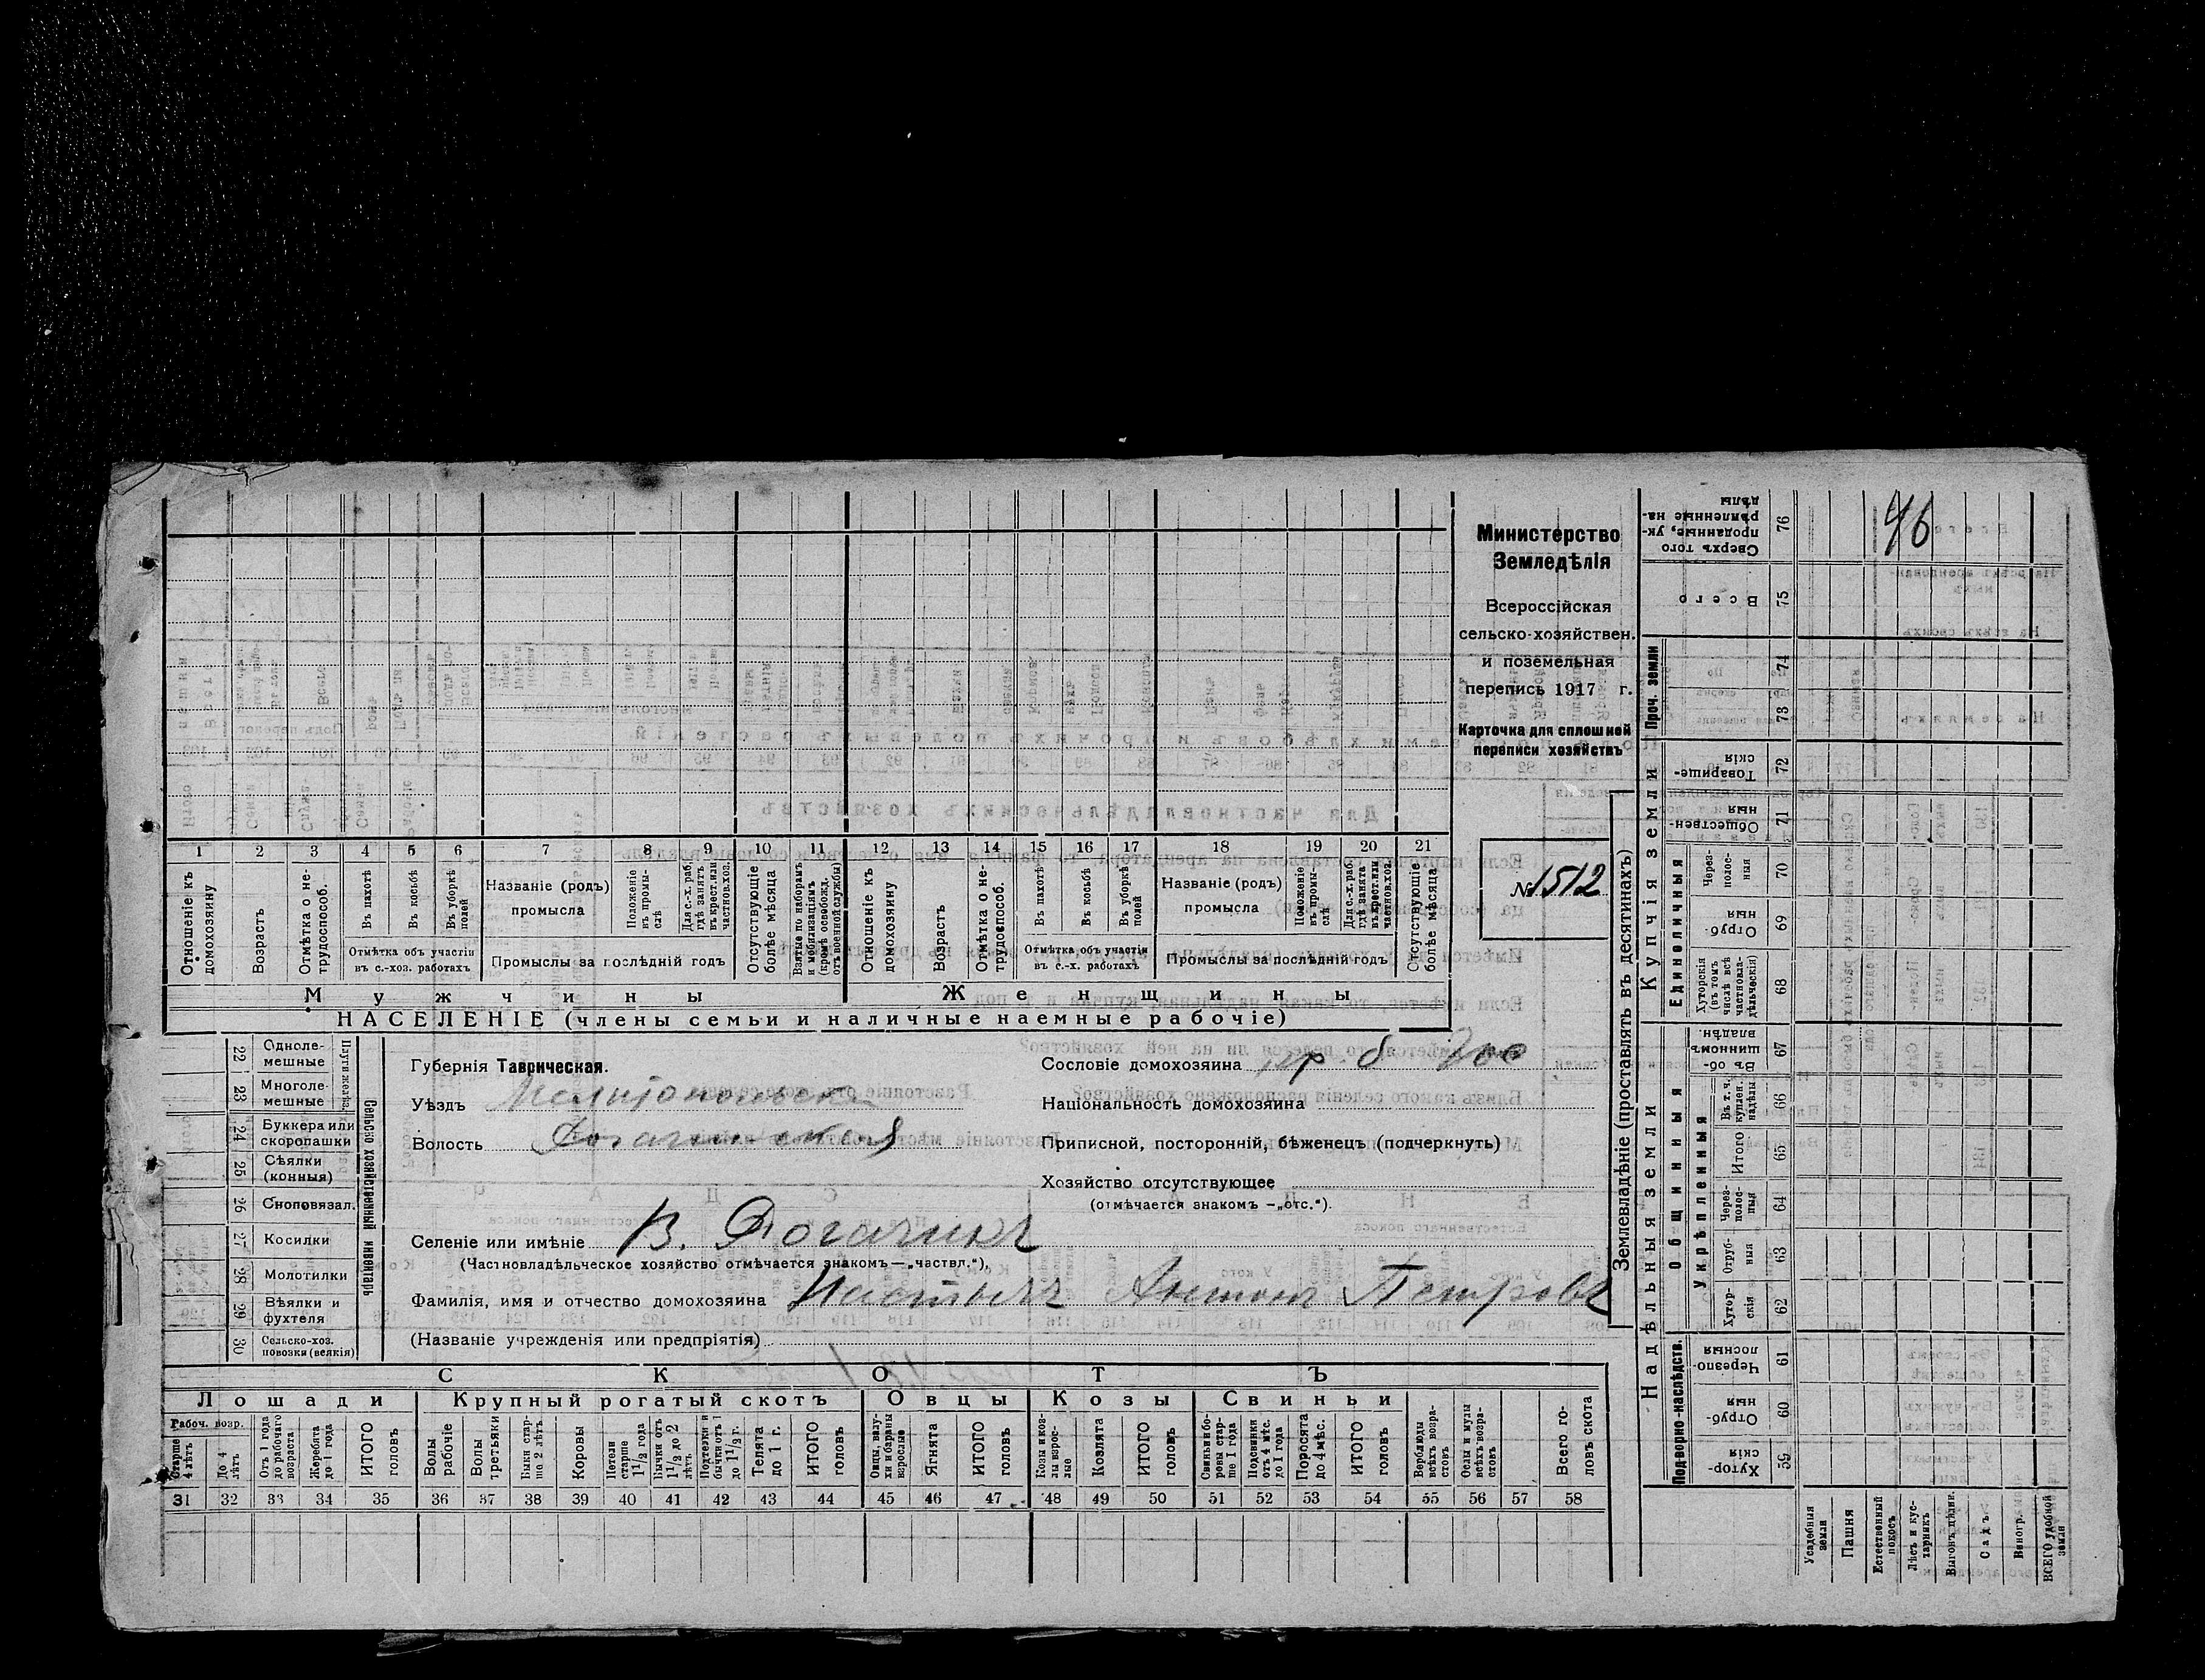 Министерство
Земледѣлія
Всероссійская
сельско-хозяйствен.
и поземельная
перепись 1917 г.
Карточка для сплошной
переписи хозяйствъ
№ 1512
1 2 3 4 5 6 7 8 9 10 11 12 13 14 15 16 17 18 19 20 21
Отношеніе къ домохозяину
Возрастъ
Отмѣтка о не-трудоспособ.
Въ пахотѣ
Въ косьбѣ
Въ уборкѣ полей
Отмѣтка объ участіи
въ с.-хоз. работахъ
Названіе (родъ)
промысла
Положеніе въ промы-слѣ
Для с.-х. раб. гдѣ занятъ въ крест. или частнов. хоз.
Промыслы за послѣдній годъ
Отсутствующіе болѣе мѣсяца
Взятые по наборамъ и мобилизаціямъ (кромѣ освобожд. отъ военной службы)
Отношеніе къ домохозяину
Возрастъ
Отмѣтка о не-трудоспособ.
Въ пахотѣ
Въ косьбѣ
Въ уборкѣ полей
Отмѣтка объ участіи
въ с.-х. работахъ
Названіе (родъ)
промысла
Положеніе въ промы-слѣ
Для с.-х. раб. гдѣ занята въ крест. или частнов. хоз.
Промыслы за послѣдній годъ
Отсутствующіе болѣе мѣсяца
Мужчины
Женщины
НАСЕЛЕНІЕ (члены семьи и наличные наемные рабочіе)
Сельско хозяйственный инвентарь.
Плуги желѣз.
22 Одноле-мешные
23 Многоле-мешные
24 Буккера или скоропашки
25 Сѣялки (конныя)
26 Сноповязал.
27 Косилки
28 Молотилки
29 Вѣялки и фухтеля
30 Сельско-хоз. повозки (всякія)
Губернія Таврическая.
Уѣздъ
Волость
Сословіе домохозяина
Національность домохозяина
Приписной, посторонній, бѣженецъ (подчеркнуть)
Хозяйство отсутствующее
(отмѣчается знакомъ —„отс.“).
Селеніе или имѣніе В. Рогачикъ
(Частновладѣльческое хозяйство отмѣчается знакомъ —„частвл.“),
Фамилія, имя и отчество домохозяина Антонъ Петровъ
(Названіе учрежденія или предпріятія)
СКОТЪ
Лошади
Крупный рогатый скотъ
Овцы
Козы
Свиньи
Рабоч. возр.
Старше 4 лѣтъ
До 4 лѣтъ
Отъ 1 года до рабочаго возраста
Жеребята до 1 года
ИТОГО головъ
Волы рабочіе
Волы третьяки
Быки стар-ше 2 лѣтъ
Коровы
Нетели старше 1½ года
Бычки отъ 1½ до 2 лѣтъ
Подтелки и бычки отъ 1 до 1½ г.
Телята до 1 г.
ИТОГО головъ
Овцы, валу-хи и бараны взрослые
Ягнята
ИТОГО головъ
Козы и коз-лы взрос-лые
Козлята
ИТОГО головъ
Свиньи и бо-ровы стар-ше 1 года
Подсвинки отъ 4 мѣс. до 1 года
Поросята до 4 мѣс.
ИТОГО головъ
Верблюды всѣхъ возра-стовъ
Ослы и мулы всѣхъ возра-стовъ
Всего го-ловъ скота
31 32 33 34 35 36 37 38 39 40 41 42 43 44 45 46 47 48 49 50 51 52 53 54 55 56 57 58
Землевладѣніе (проставлять въ десятинахъ)
Надѣльныя земли
Купчія земли
Проч. земли
Подворно-наслѣдств.
Общинныя
Укрѣпленныя
Единоличныя
76 Сверхъ того проданные, ук-рѣпленные на-дѣлы
46
75 Всего
74
73
72 Товарище-скія
71 Обществен-ныя
70 Через-полос-ныя
69 Отруб-ныя
68 Хуторскія (въ томъ числѣ всѣ частновла-дѣльческія)
67 Въ об-щинномъ владѣн.
66 Въ т. ч. куплен. надѣлы
65 Итого
64 Через-полос-ныя
63 Отруб-ныя
62 Хутор-скія
61 Черезпо-лосныя
60 Отруб-ныя
59 Хутор-скія
Усадебныя земли
Пашня
Естественный покосъ
Лѣсъ и кус-тарникъ
Выгонъ цѣлин.
Садъ
Виногр.
ВСЕГО удобной земли